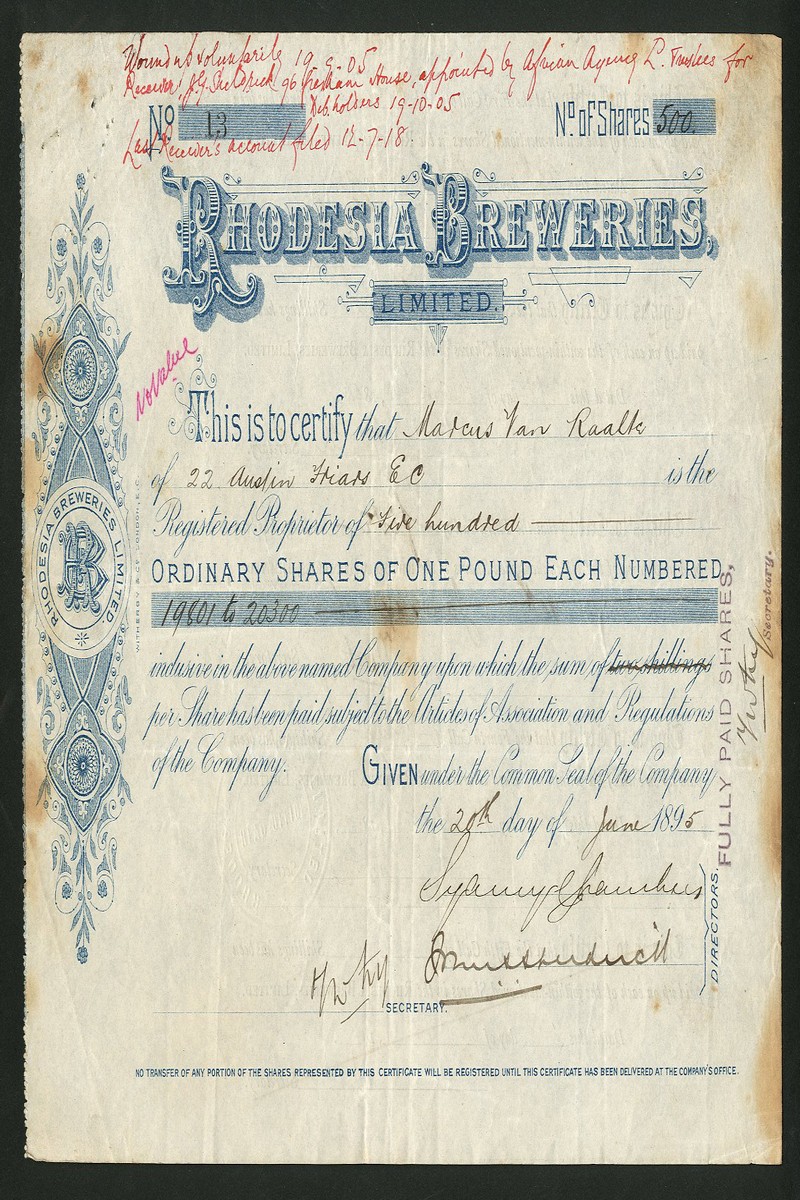 Wound up voluntarily 19-9-05
Receiver J.G. 96 Gresham House, appointed by African Agency L. Trustees for
Deb. holders 19-10-05
Last Receiver's account filed 12-7-18
No 13
No of Shares 500.
RHODESIA BREWERIES,
LIMITED.
No value
This is to certify that Marcus Van Raalte
of 22 Austin Friars E C is the
Registered Proprietor of Five hundred
ORDINARY SHARES OF ONE POUND EACH NUMBERED
19801 to 20300
inclusive in the above named Company upon which the sum of two shillings
per Share has been paid, subject to the Articles of Association and Regulations
of the Company. GIVEN under the Common Seal of the Company
the 20th day of June 1895
DIRECTORS.
SECRETARY.
NO TRANSFER OF ANY PORTION OF THE SHARES REPRESENTED BY THIS CERTIFICATE WILL BE REGISTERED UNTIL THIS CERTIFICATE HAS BEEN DELIVERED AT THE COMPANY'S OFFICE.
FULLY PAID SHARES,
Secretary.
RHODESIA BREWERIES LIMITED
WITHERBY & CO LONDON, E.C.